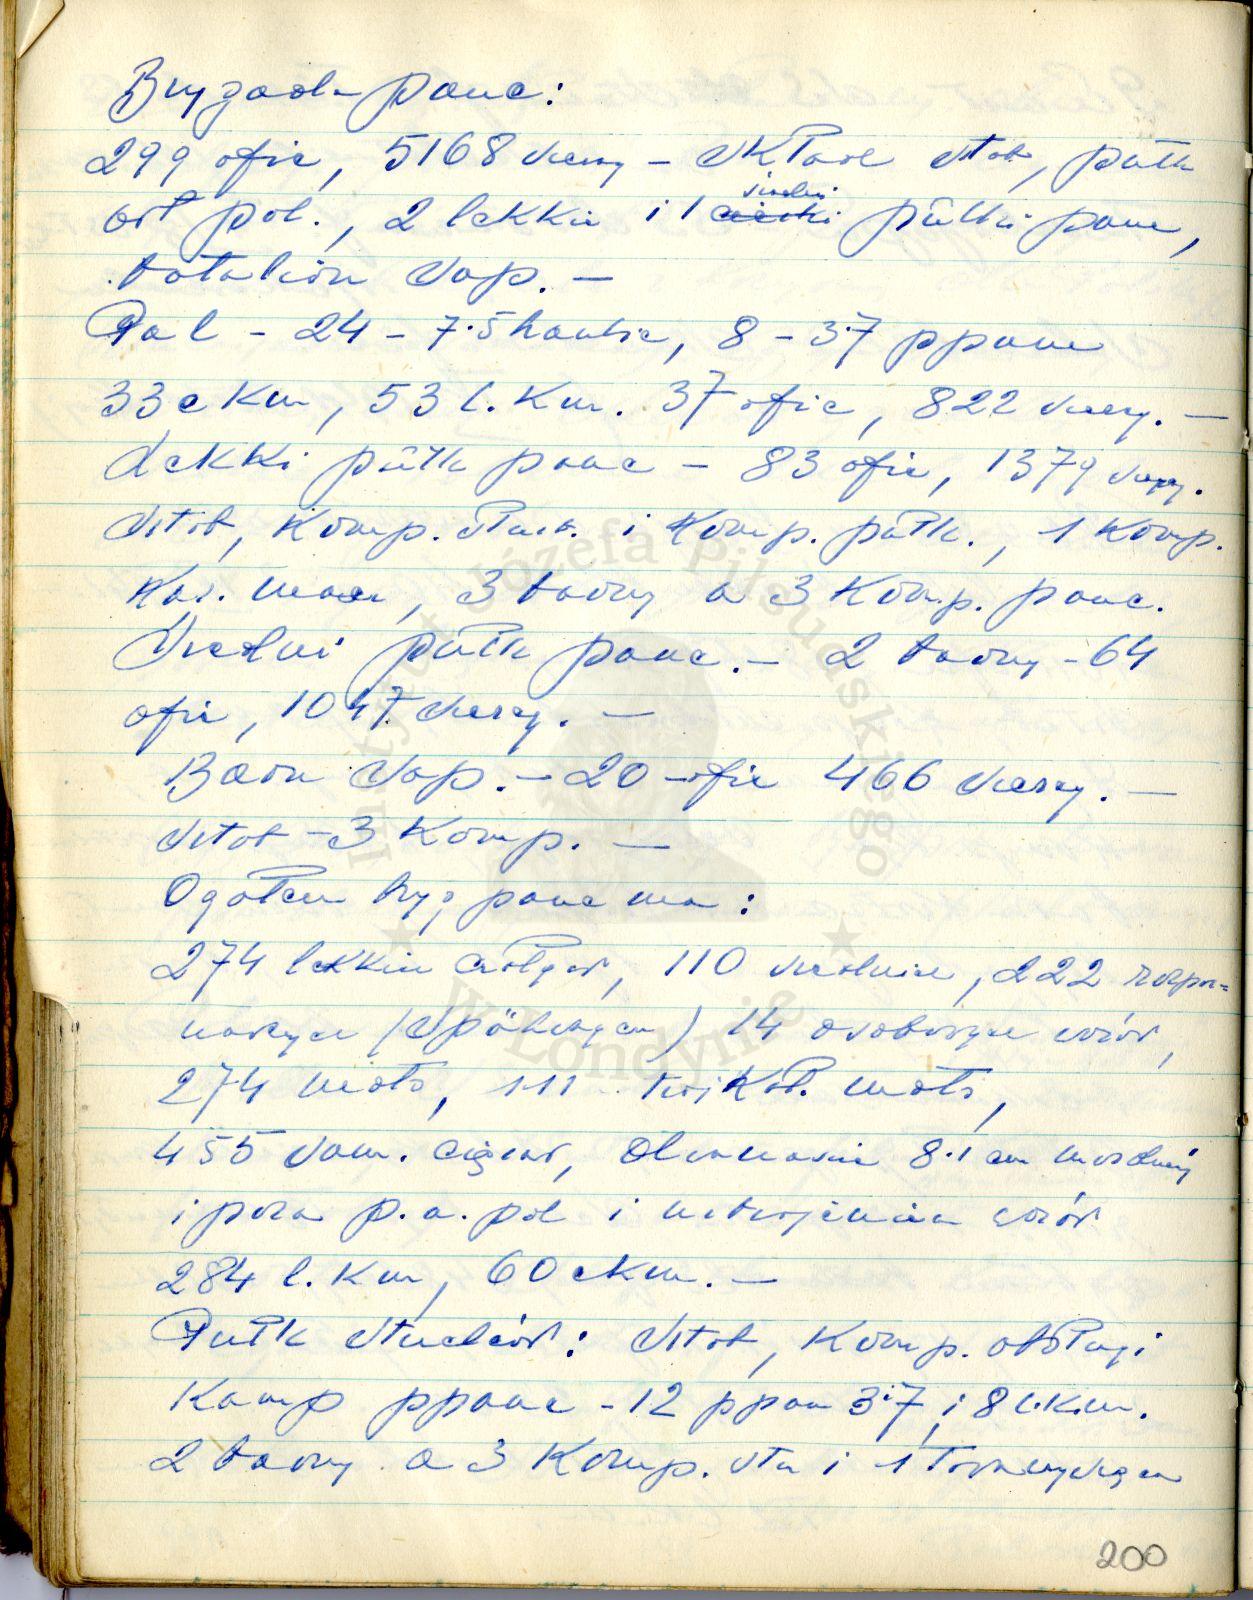 Brygada panc:
299 ofic, 5168 szereg – skład sztab, pułk
art pol., 2 lekkie i 1 średni pułki panc,
batalion sap. –
Pal – 24 – 7.5 haubic, 8 – 3.7 ppanc
33 ckm, 53 l. km. 37 ofic, 822 szereg. –
Lekki pułk panc – 83 ofic, 1379 szereg.
Sztab, komp. i komp. pułk., 1 komp.
3 baony a 3 komp. panc.
Średni pułk panc. – 2 baony – 64
ofic, 1047 szereg. –
Baon sap. – 20 – ofic 466 szereg. –
Sztab – 3 komp. –
Ogółem bryg panc ma:
274 lekkie czołgów, 110 średnich, 222 rozpo=
znawcze (Spähwagen) 14 osobowych wozów,
274 moto, 111 trójkoł. moto,
455 sam. ciężar, 8.1 cm moździerzy
i poza p. a. pol i uzbrojeniem wozów
284 l. km, 60 ckm. –
Pułk strzelców: Sztab, komp. obsługi
Komp ppanc – 12 ppanc 3.7 i 8 l.k.m.
2 baony a 3 komp. i 1
200
Instytut Józefa Piłsudskiego
w Londynie